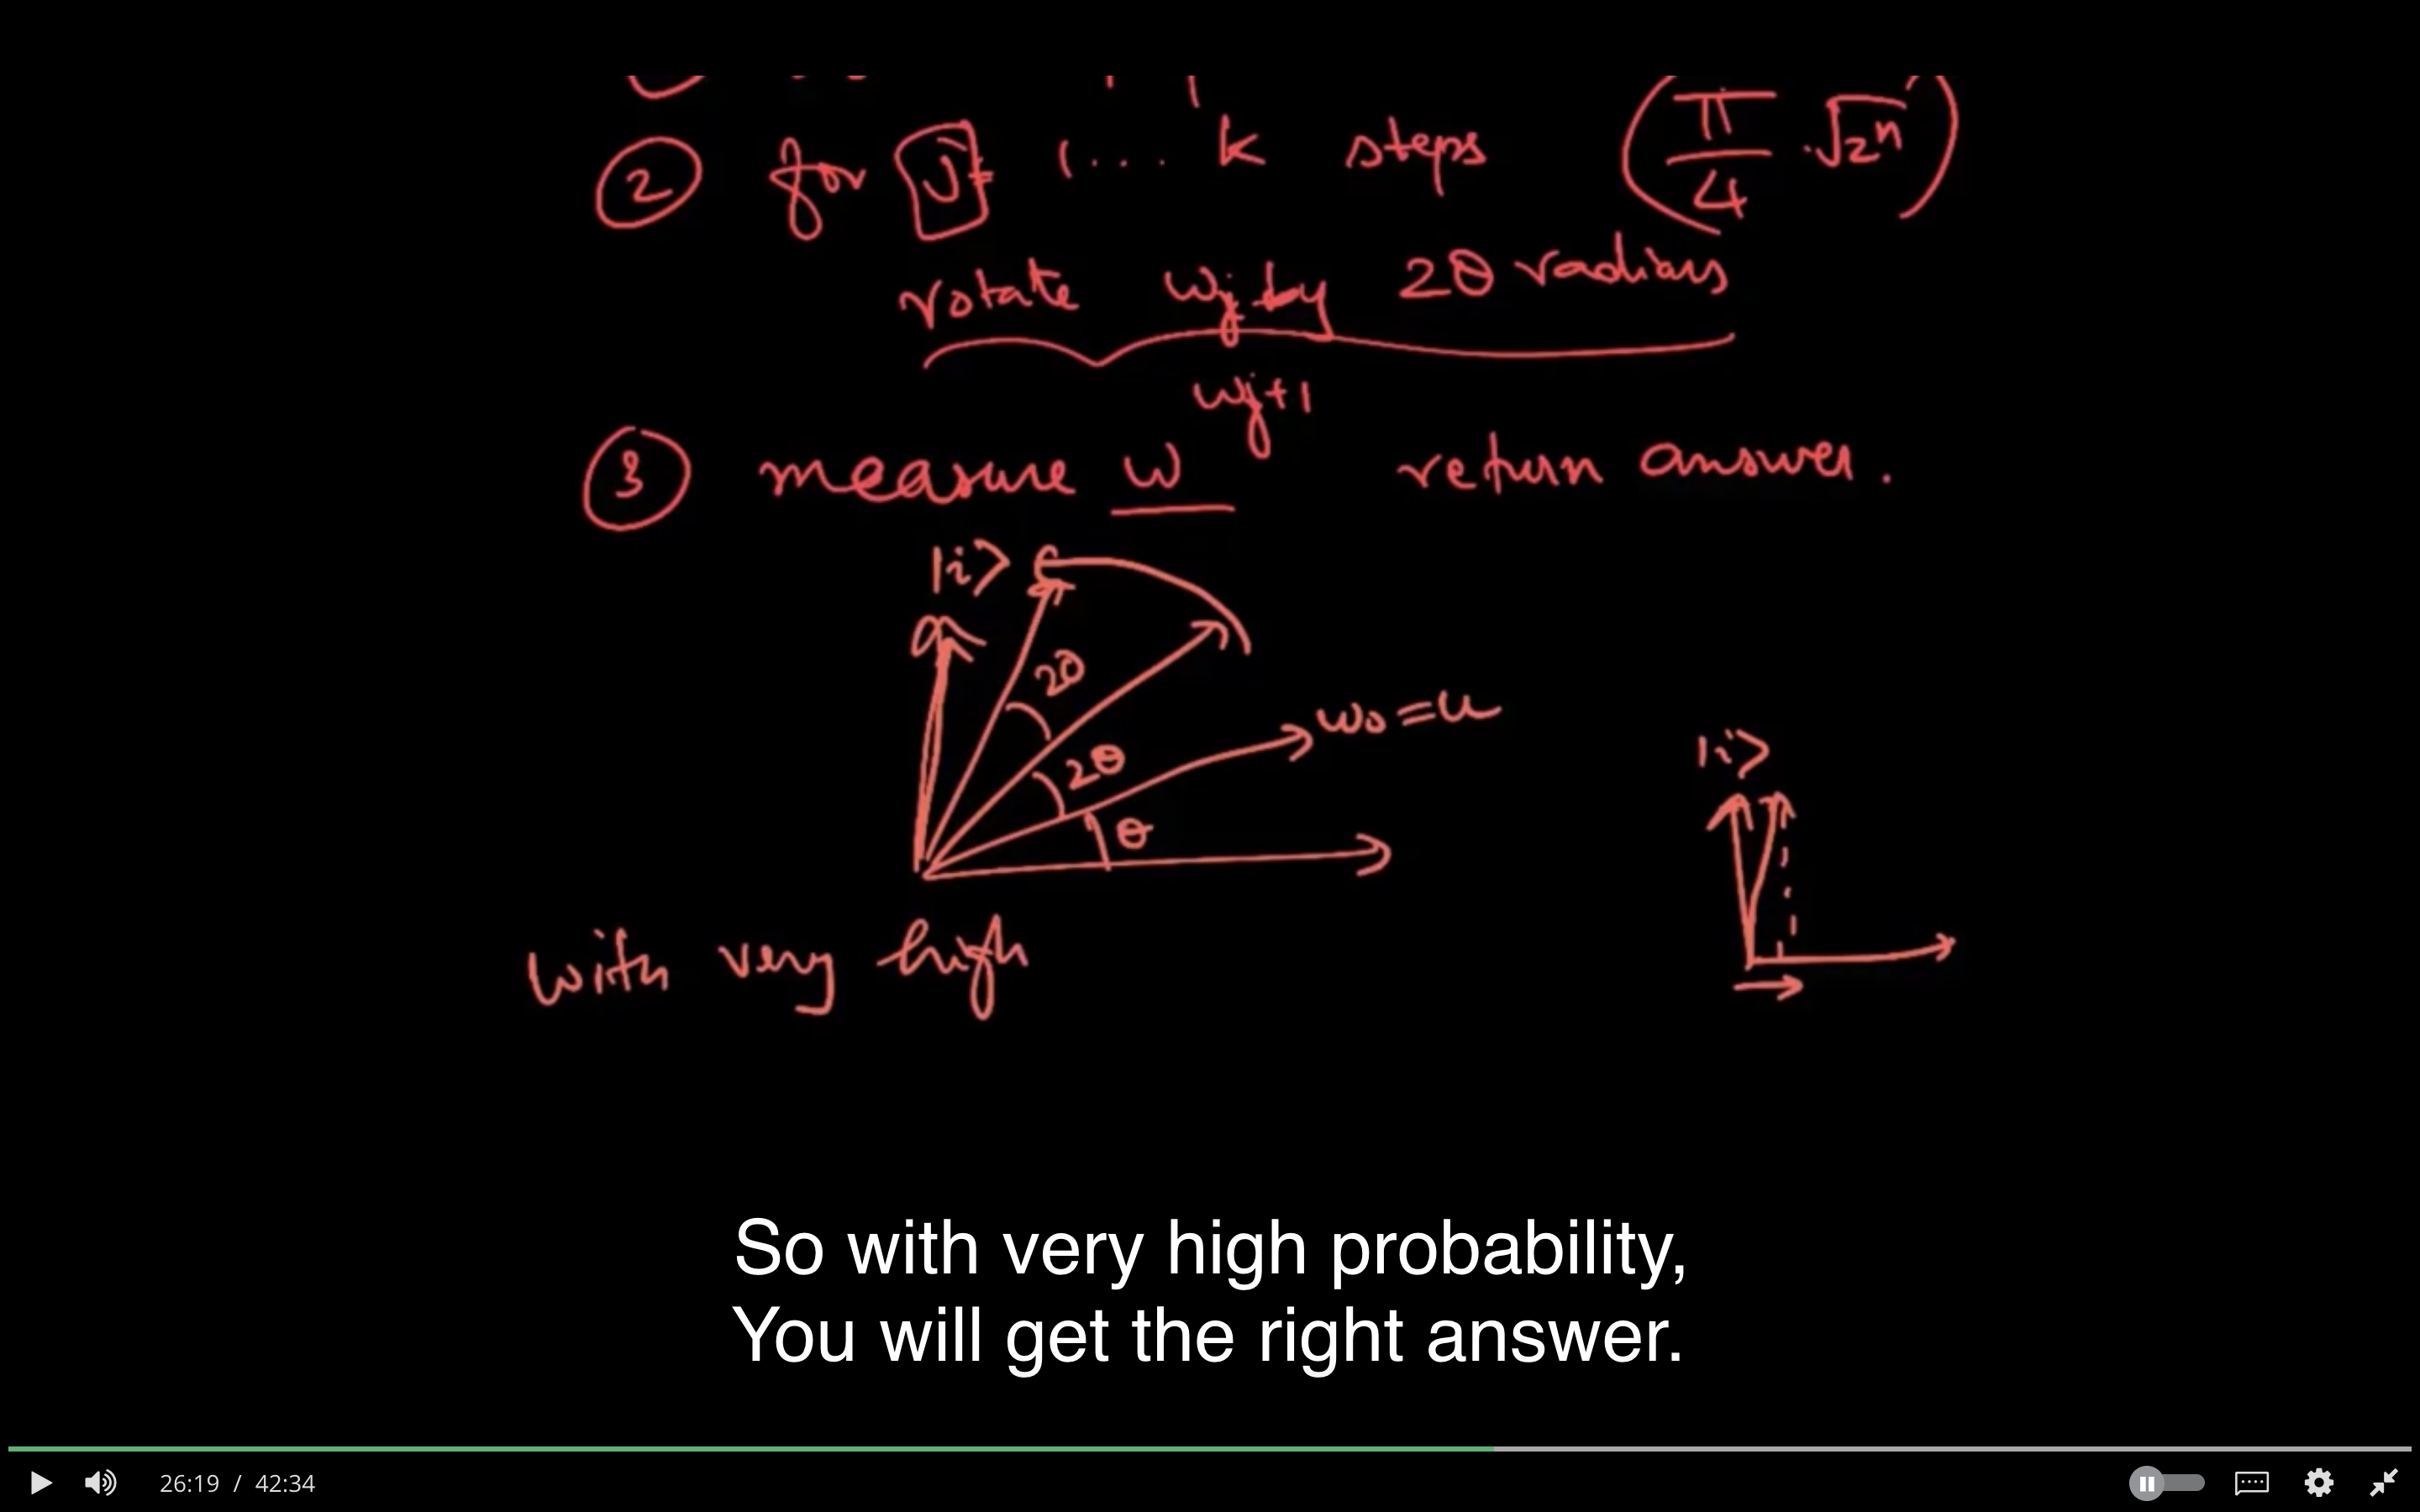 ② for j = 1 ... k steps (π/4 · √2ⁿ)
rotate wj by 2θ radians
wj+1
③ measure w return answer.
|i⟩
2θ
w₀ = u
2θ
θ
|i⟩
with very high
So with very high probability,
You will get the right answer.
26:19 / 42:34